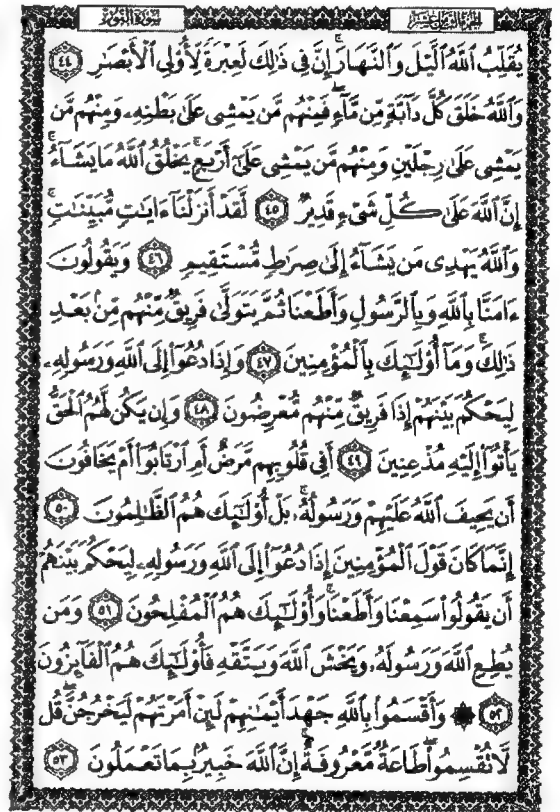 سُورَةُ النُّورِ الجزء الثامن عشر
يُقَلِّبُ ٱللَّهُ ٱلَّيْلَ وَٱلنَّهَارَ ۚ إِنَّ فِى ذَٰلِكَ لَعِبْرَةً لِّأُو۟لِى ٱلْأَبْصَٰرِ ٤٤
وَٱللَّهُ خَلَقَ كُلَّ دَآبَّةٍ مِّن مَّآءٍ ۖ فَمِنْهُم مَّن يَمْشِى عَلَىٰ بَطْنِهِۦ وَمِنْهُم مَّن
يَمْشِى عَلَىٰ رِجْلَيْنِ وَمِنْهُم مَّن يَمْشِى عَلَىٰٓ أَرْبَعٍ ۚ يَخْلُقُ ٱللَّهُ مَا يَشَآءُ ۚ
إِنَّ ٱللَّهَ عَلَىٰ كُلِّ شَىْءٍ قَدِيرٌ ٤٥ لَّقَدْ أَنزَلْنَآ ءَايَٰتٍ مُّبَيِّنَٰتٍ ۚ
وَٱللَّهُ يَهْدِى مَن يَشَآءُ إِلَىٰ صِرَٰطٍ مُّسْتَقِيمٍ ٤٦ وَيَقُولُونَ
ءَامَنَّا بِٱللَّهِ وَبِٱلرَّسُولِ وَأَطَعْنَا ثُمَّ يَتَوَلَّىٰ فَرِيقٌ مِّنْهُم مِّنۢ بَعْدِ
ذَٰلِكَ ۚ وَمَآ أُو۟لَٰٓئِكَ بِٱلْمُؤْمِنِينَ ٤٧ وَإِذَا دُعُوٓا۟ إِلَى ٱللَّهِ وَرَسُولِهِۦ
لِيَحْكُمَ بَيْنَهُمْ إِذَا فَرِيقٌ مِّنْهُم مُّعْرِضُونَ ٤٨ وَإِن يَكُن لَّهُمُ ٱلْحَقُّ
يَأْتُوٓا۟ إِلَيْهِ مُذْعِنِينَ ٤٩ أَفِى قُلُوبِهِم مَّرَضٌ أَمِ ٱرْتَابُوٓا۟ أَمْ يَخَافُونَ
أَن يَحِيفَ ٱللَّهُ عَلَيْهِمْ وَرَسُولُهُۥ ۚ بَلْ أُو۟لَٰٓئِكَ هُمُ ٱلظَّٰلِمُونَ ٥٠
إِنَّمَا كَانَ قَوْلَ ٱلْمُؤْمِنِينَ إِذَا دُعُوٓا۟ إِلَى ٱللَّهِ وَرَسُولِهِۦ لِيَحْكُمَ بَيْنَهُمْ
أَن يَقُولُوا۟ سَمِعْنَا وَأَطَعْنَا ۚ وَأُو۟لَٰٓئِكَ هُمُ ٱلْمُفْلِحُونَ ٥١ وَمَن
يُطِعِ ٱللَّهَ وَرَسُولَهُۥ وَيَخْشَ ٱللَّهَ وَيَتَّقْهِ فَأُو۟لَٰٓئِكَ هُمُ ٱلْفَآئِزُونَ
٥٢ ۞ وَأَقْسَمُوا۟ بِٱللَّهِ جَهْدَ أَيْمَٰنِهِمْ لَئِنْ أَمَرْتَهُمْ لَيَخْرُجُنَّ ۖ قُل
لَّا تُقْسِمُوا۟ ۖ طَاعَةٌ مَّعْرُوفَةٌ ۚ إِنَّ ٱللَّهَ خَبِيرٌۢ بِمَا تَعْمَلُونَ ٥٣